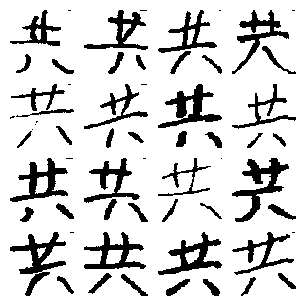 共共共共
共共共共
共共共共
共共共共